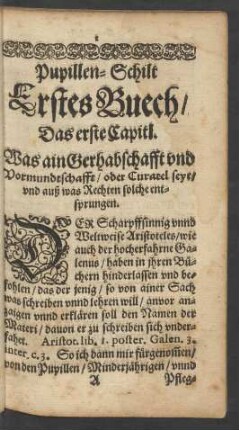 1
Pupillen-Schilt
Erstes Buech/
Das erste Capitl.
Was ain Gerhabschafft vnd
Vormundtschafft / oder Curatel seye/
vnd auß was Rechten solche ent-
sprungen.
DER Scharpffsinnig vnnd
Weltweise Aristoteles / wie
auch der hocherfahrne Ga-
lenus / haben in jhren Bü-
chern hinderlassen vnd be-
fohlen / das der jenig / so von ainer Sach
was schreiben vnnd lehren will / anvor an-
zaigen vnnd erklären soll den Namen der
Materi / dauon er zu schreiben sich vnder-
fahet. Aristot. lib. 1. poster. Galen. 3.
inter. c. 3. So ich dann mir fürgenom̃en /
von den Pupillen / Minderjährigen / vnnd
A Pfleg-